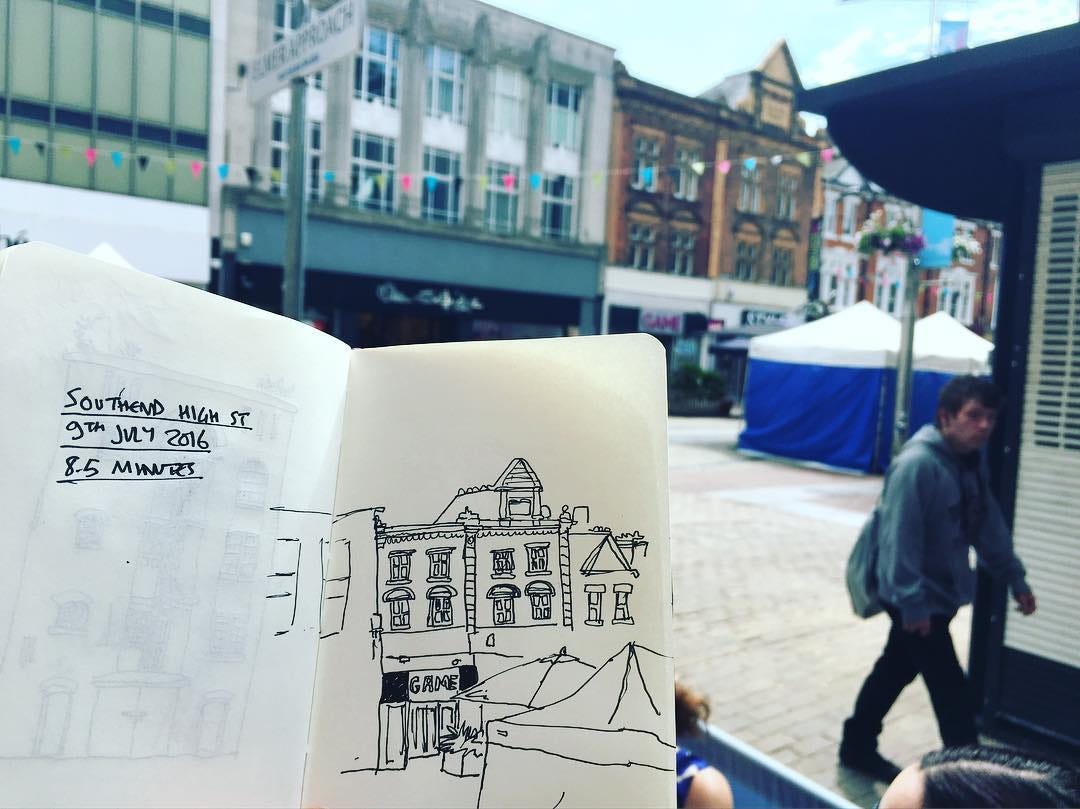 ELMER APPROACH
GAME
SOUTHEND HIGH ST
9TH JULY 2016
8.5 MINUTES
GAME